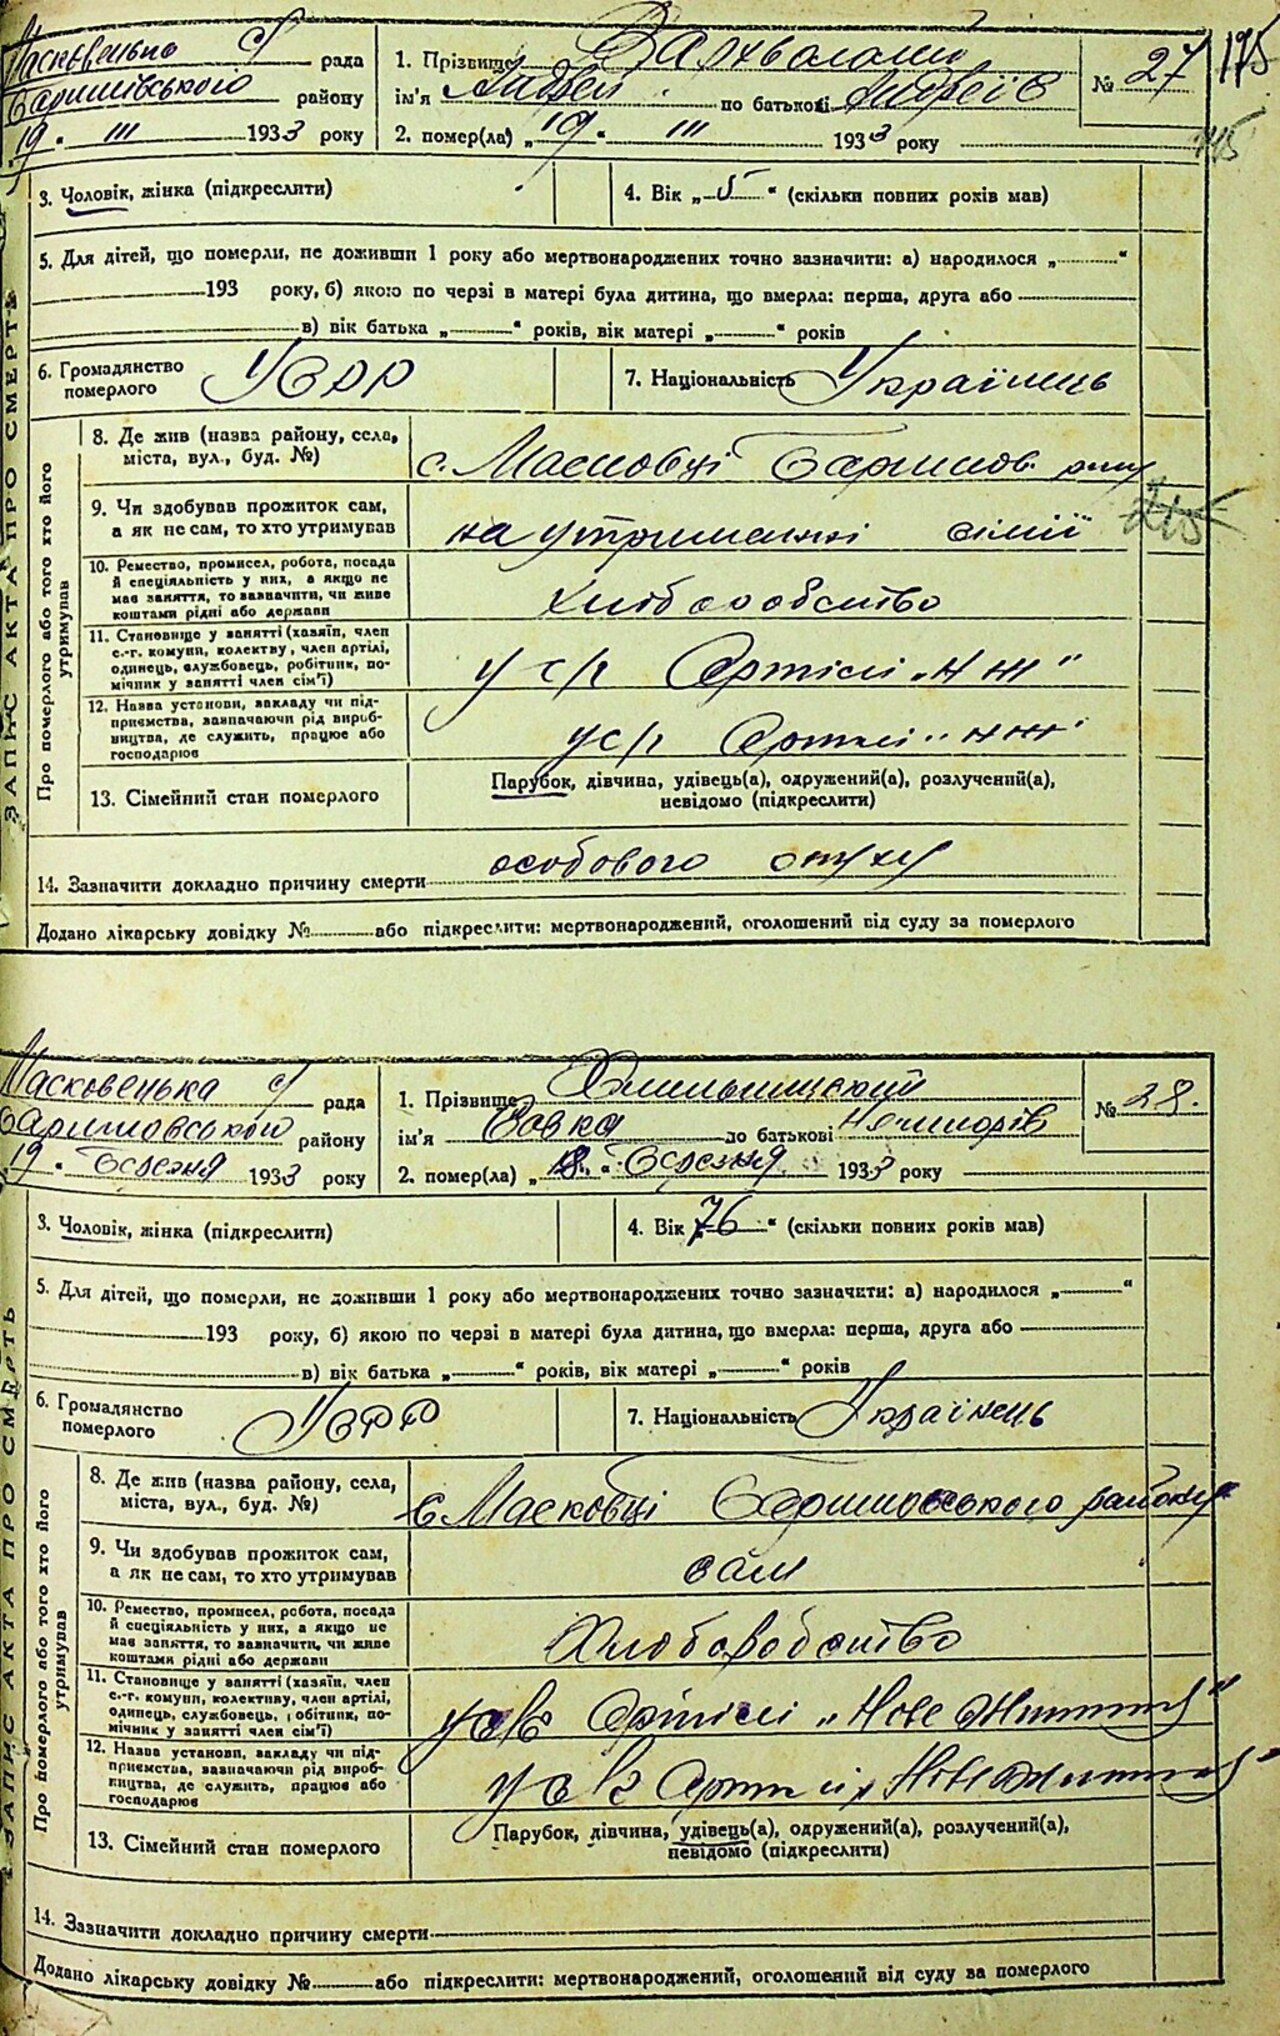 Масковецька с/ рада
Баришівського району
„19“ III 1933 року
1. Прізвище
ім'я Андрей по батькові Андреів
2. помер(ла) „19“ III 1933 року
№ 27
195
ЗАПИС АКТА ПРО СМЕРТЬ
3. Чоловік, жінка (підкреслити)
4. Вік „5“ (скільки повних років мав)
5. Для дітей, що померли, не доживши 1 року або мертвонароджених точно зазначити: а) народилося „ “
193 року, б) якою по черзі в матері була дитина, що вмерла: перша, друга або
в) вік батька „ “ років, вік матері „ “ років
6. Громадянство
померлого
УСРР
7. Національність Українець
Про померлого або того хто його
утримував
8. Де жив (назва району, села,
міста, вул., буд. №)
с. Масковці Баришов. рну
9. Чи здобував прожиток сам,
а як не сам, то хто утримував
на утриманні сімії
10. Ремество, промисел, робота, посада
й спеціяльність у них, а якщо не
має заняття, то зазначити, чи живе
коштами рідні або держави
хлібробство
11. Становище у занятті (хазяїн, член
с.-г. комуни, колективу, член артілі,
одинець, службовець, робітник, по-
мічник у занятті член сім'ї)
у с/г Артілі „НЖ“
12. Назва установи, закладу чи під-
приємства, зазначаючи рід вироб-
ництва, де служить, працює або
господарює
у с/г Артілі „НЖ“
13. Сімейний стан померлого
Парубок, дівчина, удівець(а), одружений(а), розлучений(а),
невідомо (підкреслити)
14. Зазначити докладно причину смерти особового опуху
Додано лікарську довідку № або підкреслити: мертвонароджений, оголошений від суду за померлого
Масковецька с/ рада
Баришовської району
19 “ Березня 1933 року
1. Прізвище Хмильницкий
ім'я Савка по батькові Ничипорів
2. помер(ла) „18“ Березня 1933 року
№ 28.
ЗАПИС АКТА ПРО СМЕРТЬ
3. Чоловік, жінка (підкреслити)
4. Вік „76“ (скільки повних років мав)
5. Для дітей, що померли, не доживши 1 року або мертвонароджених точно зазначити: а) народилося „ “
193 року, б) якою по черзі в матері була дитина, що вмерла: перша, друга або
в) вік батька „ “ років, вік матері „ “ років
6. Громадянство
померлого
УСРР
7. Національність Українець
Про померлого або того хто його
утримував
8. Де жив (назва району, села,
міста, вул., буд. №)
с Масковці Баришовського району
9. Чи здобував прожиток сам,
а як не сам, то хто утримував
сам
10. Ремество, промисел, робота, посада
й спеціяльність у них, а якщо не
має заняття, то зазначити, чи живе
коштами рідні або держави
Хлібробство
11. Становище у занятті (хазяїн, член
с.-г. комуни, колективу, член артілі,
одинець, службовець, робітник, по-
мічник у занятті член сім'ї)
у с/г Артілі „Нове Життя“
12. Назва установи, закладу чи під-
приємства, зазначаючи рід вироб-
ництва, де служить, працює або
господарює
у с/г Артілі „Нове Життя“
13. Сімейний стан померлого
Парубок, дівчина, удівець(а), одружений(а), розлучений(а),
невідомо (підкреслити)
14. Зазначити докладно причину смерти
Додано лікарську довідку № або підкреслити: мертвонароджений, оголошений від суду за померлого